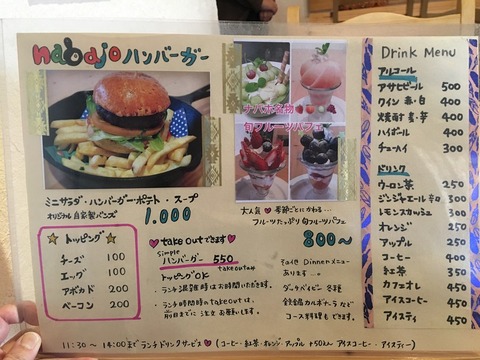 nabajo ハンバーガー
ミニサラダ・ハンバーガーポテト・スープ
オリジナル自家製バンズ 1.000
☆トッピング☆
チーズ 100
エッグ 100
アボカド 200
ベーコン 200
♥ take outできます
simple
ハンバーガー 550
take outのみ
トッピングOK
・ランチ混雑時はお待ちいただきます。
・ランチ時間時のtakeoutは、
前日までに注文お願いします。
ナバホ名物
旬フルーツパフェ
大人気♥季節ごとにかわる…
フルーツたっぷり旬フルーツパフェ
800~
その他Dinnerメニュー
あります…。
ダッチベイビー 各種
鉄鍋カルボナーラなど
コース料理もできます。
11:30~14:00までランチドリンクサービス♥(コーヒー・紅茶・オレンジ・アップル +50えん~ アイスコーヒー・アイスティー)
Drink Menu
アルコール
アサヒビール 500
ワイン 赤・白 400
焼酎 麦・芋 400
ハイボール 400
チューハイ 300
ドリンク
ウーロン茶 250
ジンジャエール 辛口 300
レモンスカッシュ 300
オレンジ 250
アップル 250
コーヒー 400
紅茶 350
カフェオレ 450
アイスコーヒー 450
アイスティ 450